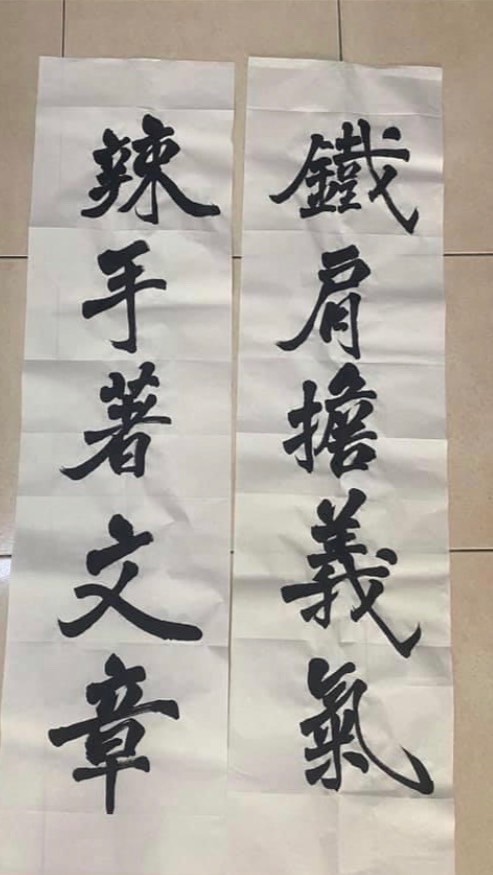 鐵肩擔義氣
辣手著文章